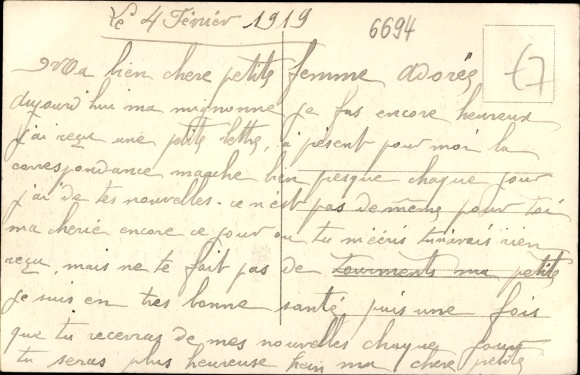 Le 4 Février 1919
6694
Ma bien chere petite femme adorée
aujourd'hui ma mignonne je fus encore heureux
j'ai reçu une petite lettre, a présent pour moi la
correspondance marche bien presque chaque jour
j'ai de tes nouvelles - ce n'est pas de même pour toi
ma cherie encore ce jour ou tu m'écris tu n'avais rien
reçu, mais ne te fait pas de tourments ma petite
je suis en tres bonne santé, puis une fois
que tu recevras de mes nouvelles chaque jour
tu seras plus heureuse hein ma chere petite